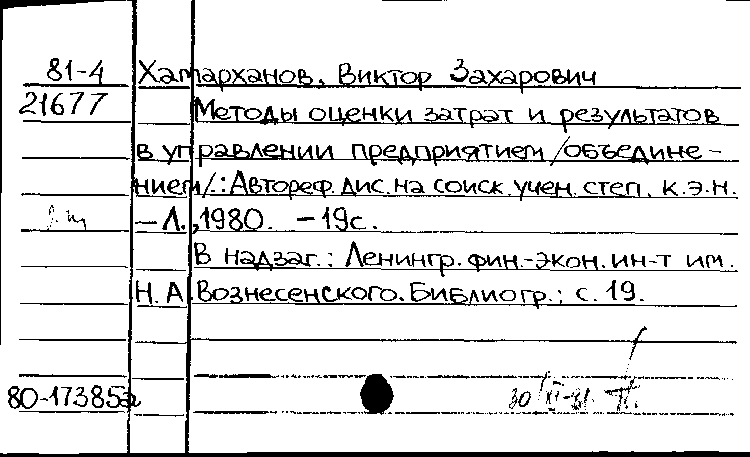 81-4 Хамарханов, Виктор Захарович
21677 Методы оценки затрат и результатов
в управлении предприятием/объедине-
нием/: Автореф. дис. на соиск. учен. степ. к.э.н.
– Л., 1980. – 19с.
В надзаг.: Ленингр. фин.-экон. ин-т им.
Н.А. Вознесенского. Библиогр.: с. 19.
80-17385а